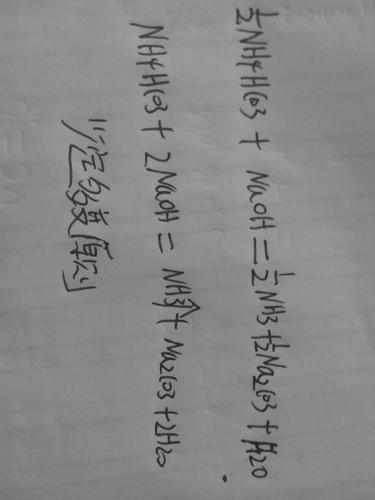 ½NH4HCO3 + NaOH = ½NH3 + ½Na2CO3 + H2O
NH4HCO3 + 2NaOH = NH3↑ + Na2CO3 + 2H2O
少定多变原则